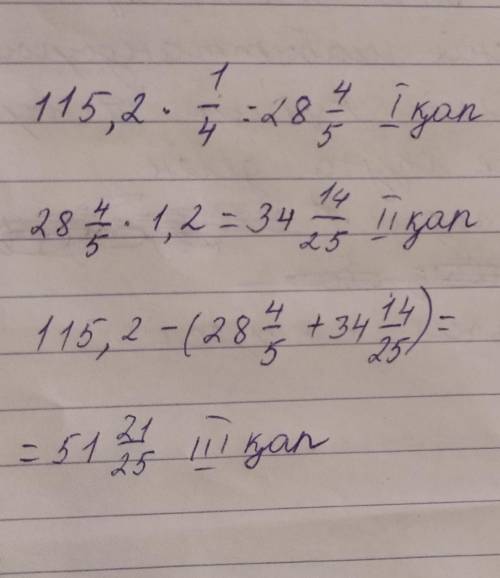 115,2 · 1/4 = 28 4/5 I қап
28 4/5 · 1,2 = 34 14/25 II қап
115,2 - (28 4/5 + 34 14/25) =
= 51 21/25 III қап